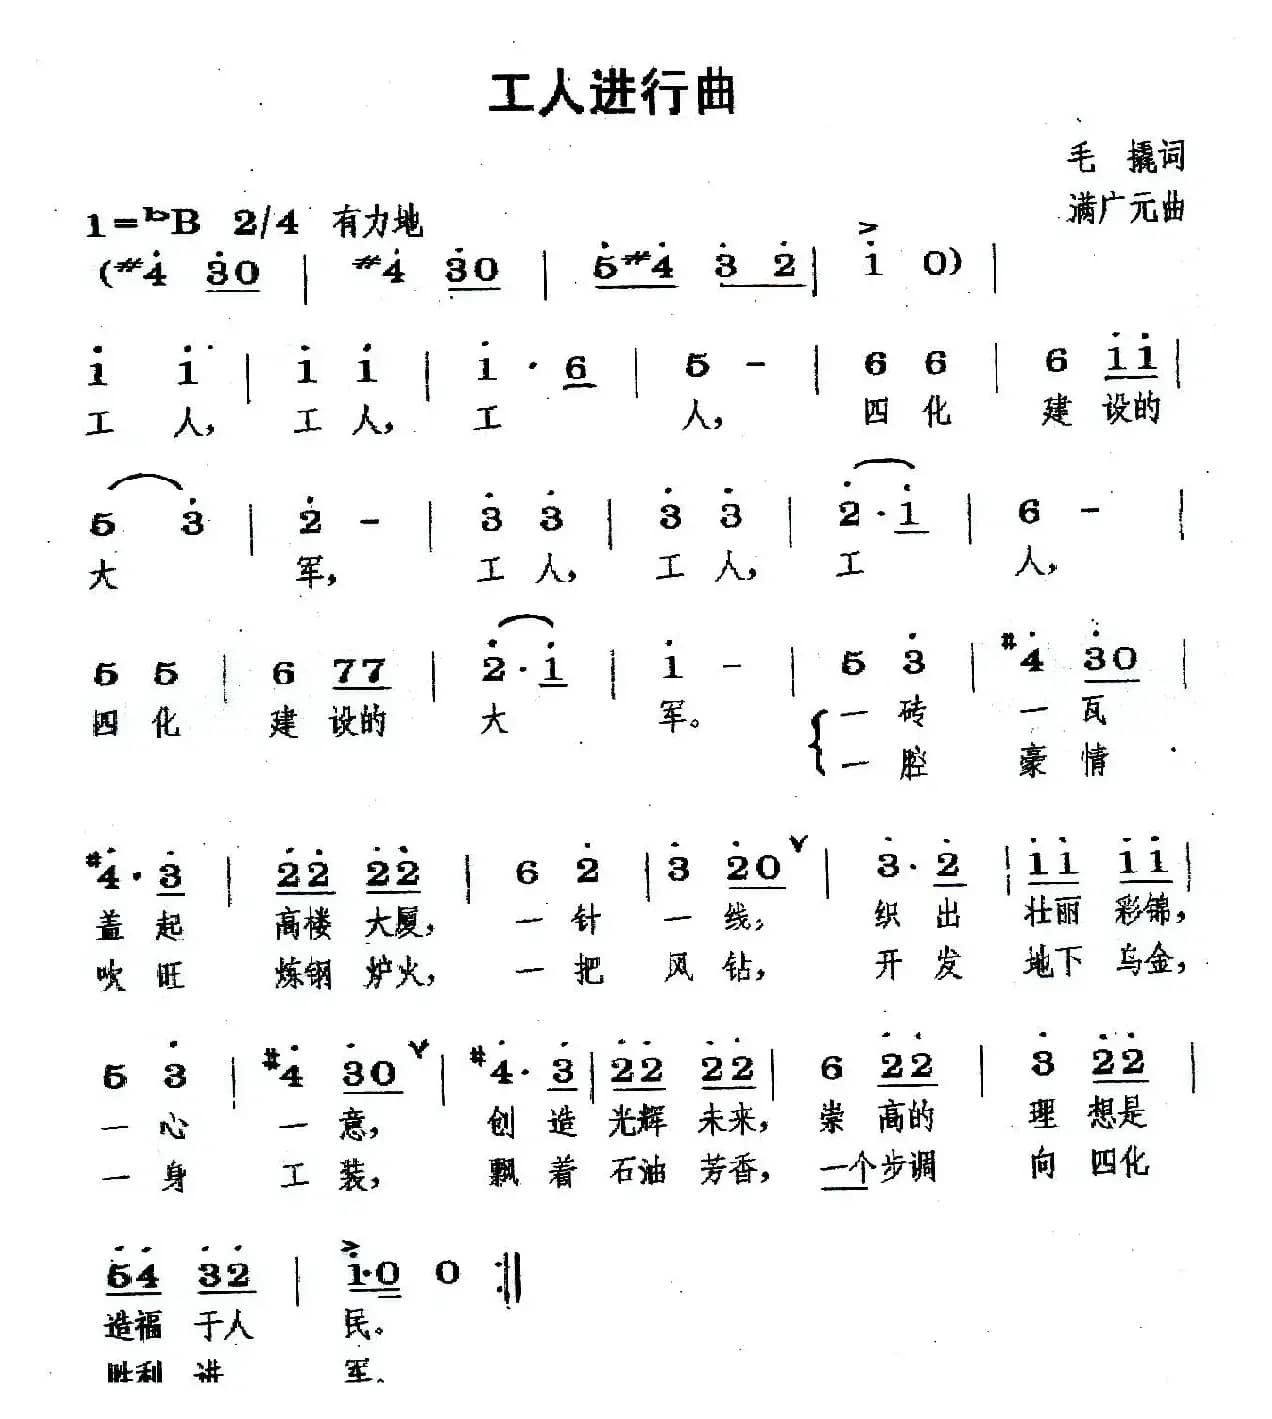 工人进行曲
毛 撬词
1=♭B 2/4 有力地 满广元曲
(#4 30 | #4 30 | 5#4 3 2 | 1 0) |
1 1 | 1 1 | 1 · 6 | 5 - | 6 6 | 6 11 |
工 人, 工 人, 工 人, 四 化 建 设的
5 3 | 2 - | 3 3 | 3 3 | 2 · 1 | 6 - |
大 军, 工 人, 工 人, 工 人,
5 5 | 6 77 | 2 · 1 | 1 - | 5 3 | #4 30 |
四 化 建 设的 大 军。 一 砖 一 瓦
一 腔 豪 情
#4 · 3 | 22 22 | 6 2 | 3 20 | 3 · 2 | 11 11 |
盖 起 高楼 大厦, 一 针 一 线, 织 出 壮丽 彩锦,
吹 旺 炼钢 炉火, 一 把 风 钻, 开 发 地下 乌金,
5 3 | #4 30 | #4 · 3 | 22 22 | 6 22 | 3 22 |
一 心 一 意, 创 造 光辉 未来, 崇 高的 理 想是
一 身 工 装, 飘 着 石油 芳香, 一个 步调 向 四化
54 32 | 1·0 0 :||
造福 于人 民。
胜利 进 军。